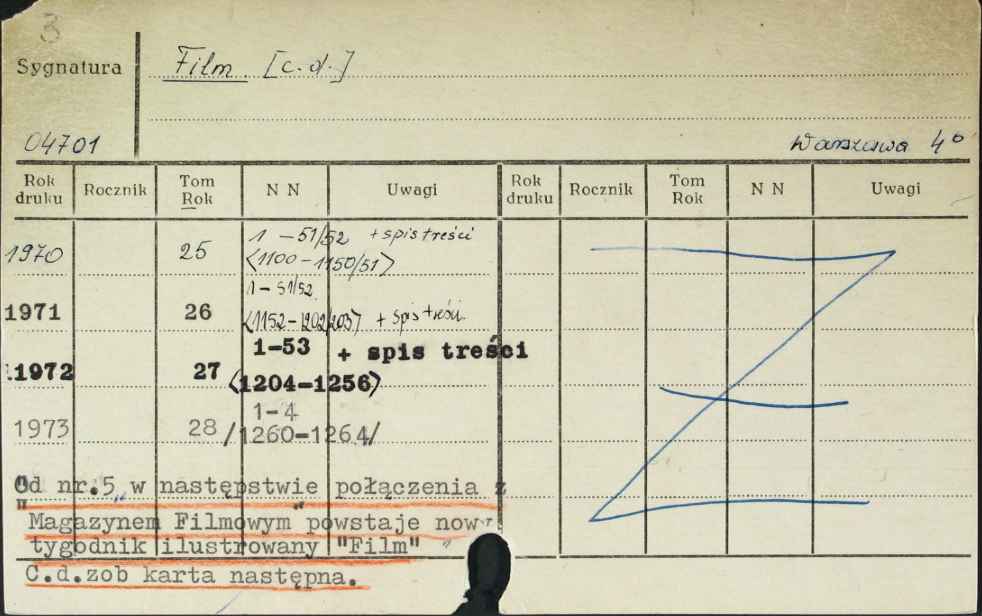 3
Sygnatura
Film [c.d.]
04701
Warszawa 4°
Rok druku Rocznik Tom Rok N N Uwagi Rok druku Rocznik Tom Rok N N Uwagi
1970 25 1 - 51/52 + spis treści
<1100 - 1150/51>
1971 26 1 - 51/52
<1152 - 1202/203> + spis treści
1972 27 1-53 + spis treści
<1204-1256>
1973 28 1-4
/1260-1264/
Od nr.5 w następstwie połączenia z
"Magazynem Filmowym" powstaje nowy
tygodnik ilustrowany "Film"
C.d.zob karta następna.